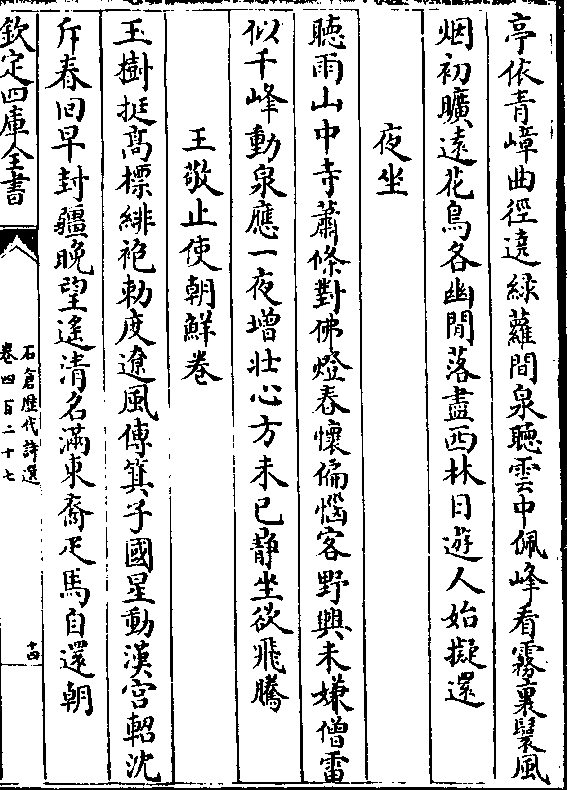 亭依青嶂曲徑遶緑蘿間泉聽雲中佩峰看霧裏鬟風
烟初曠逺花鳥各幽閒落盡西林日遊人始擬還
夜坐
聽雨山中寺蕭條對佛燈春懐偏惱客野興未嫌僧雷
似千峰動泉應一夜增壮心方未已靜坐欲飛騰
王敬止使朝鮮卷
玉樹挺髙標緋袍勅度遼風傳箕子國星動漢宫軺沈
斥春回早封疆晚望遙清名滿東裔疋馬自還朝
欽定四庫全書
石倉歴代詩選
卷四百二十七
十四